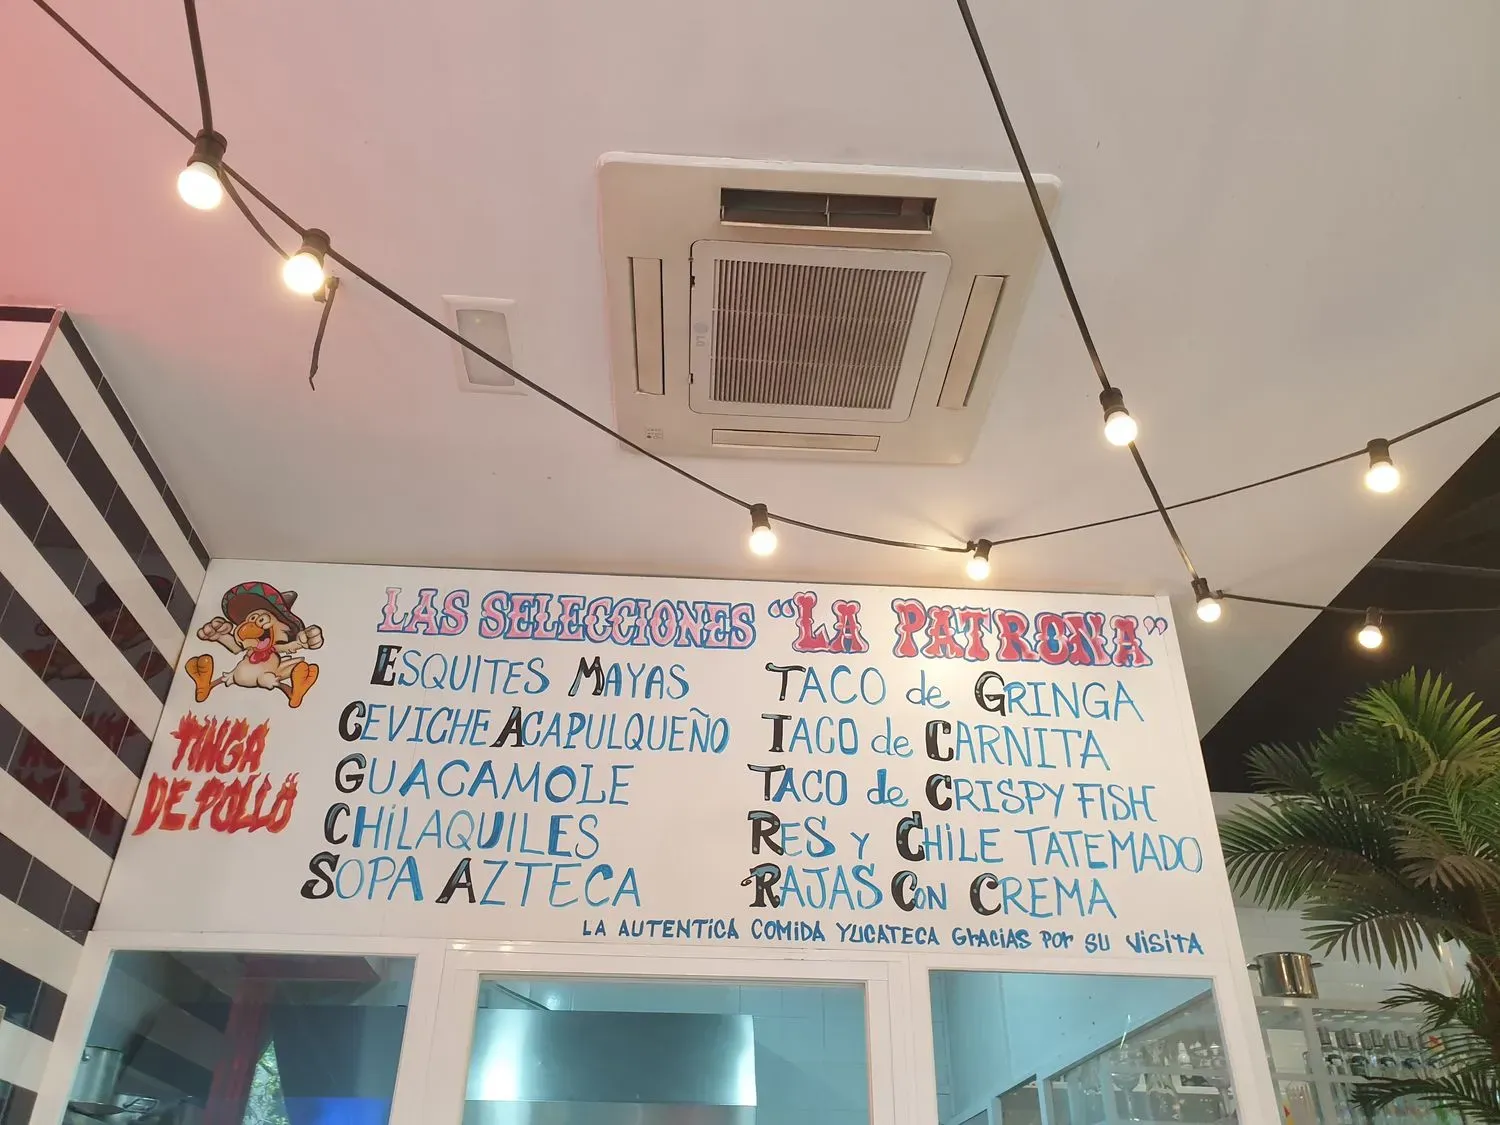 LAS SELECCIONES "LA PATRONA"
ESQUITES MAYAS
CEVICHE ACAPULQUEÑO
GUACAMOLE
CHILAQUILES
SOPA AZTECA
TACO de GRINGA
TACO de CARNITA
TACO de CRISPY FISH
RES Y CHILE TATEMADO
RAJAS CON CREMA
LA AUTENTICA COMIDA YUCATECA GRACIAS POR SU VISITA
TINGA
DE POLLO
LG